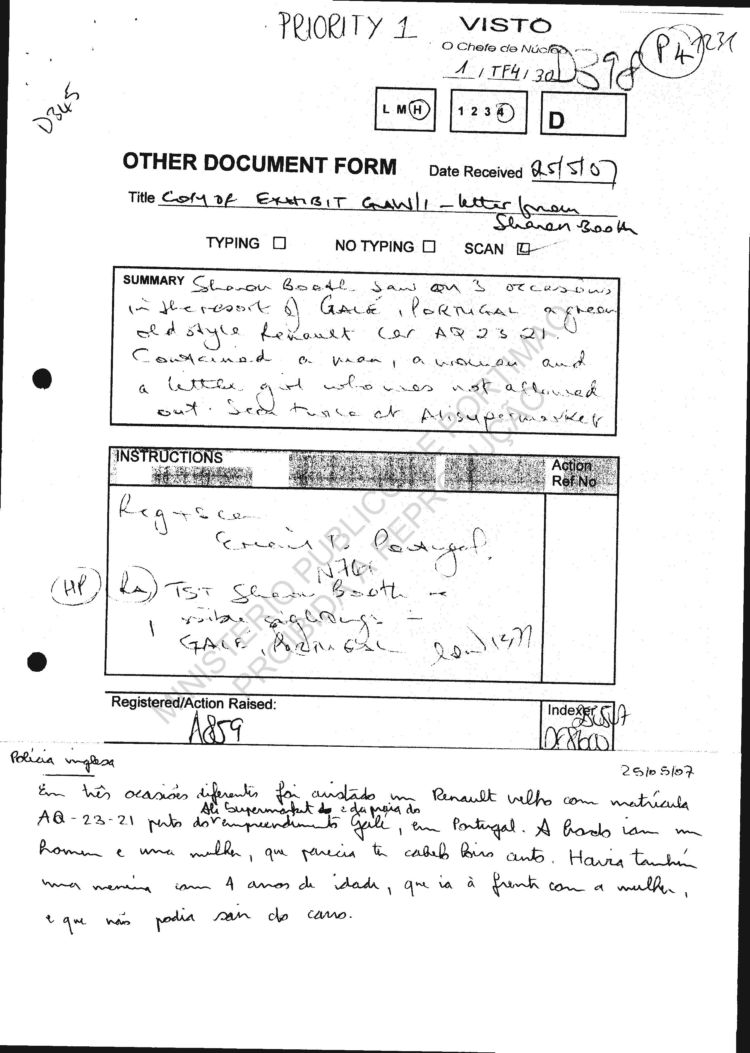 PRIORITY 1
VISTO
O Chefe de Núcleo
1 / TF4 / 30
D398
P4
1231
D345
L M H
1 2 3 4
D
OTHER DOCUMENT FORM
Date Received 25/5/07
Title COPY OF EXHIBIT GAW/1 - letter from
Sharon Booth
TYPING
NO TYPING
SCAN
SUMMARY Sharon Booth saw on 3 occasions
in the resort of GALÉ, PORTUGAL a green
old style Renault car AQ 23 21.
Contained a man, a woman and
a little girl who was not allowed
out. Seen twice at Alisupermarket
INSTRUCTIONS
Action
Ref No
Reg + Scan
Email to Portugal.
N761
HP
TST Sharon Booth re
sightings -
GALÉ, PORTUGAL
Registered/Action Raised:
A859
Indexer
MINISTERIO PUBLICO DE PORTIMÃO
PROIBIDA A REPRODUÇÃO
Polícia inglesa
25/05/07
Em três ocasiões diferentes foi avistado um Renault velho com matrícula
Ali Supermarket e da praia do
AQ-23-21 perto do empreendimento Galé, em Portugal. A bordo iam um
homem e uma mulher, que parecia ter cabelo loiro curto. Havia também
uma menina com 4 anos de idade, que ia à frente com a mulher,
e que não podia sair do carro.